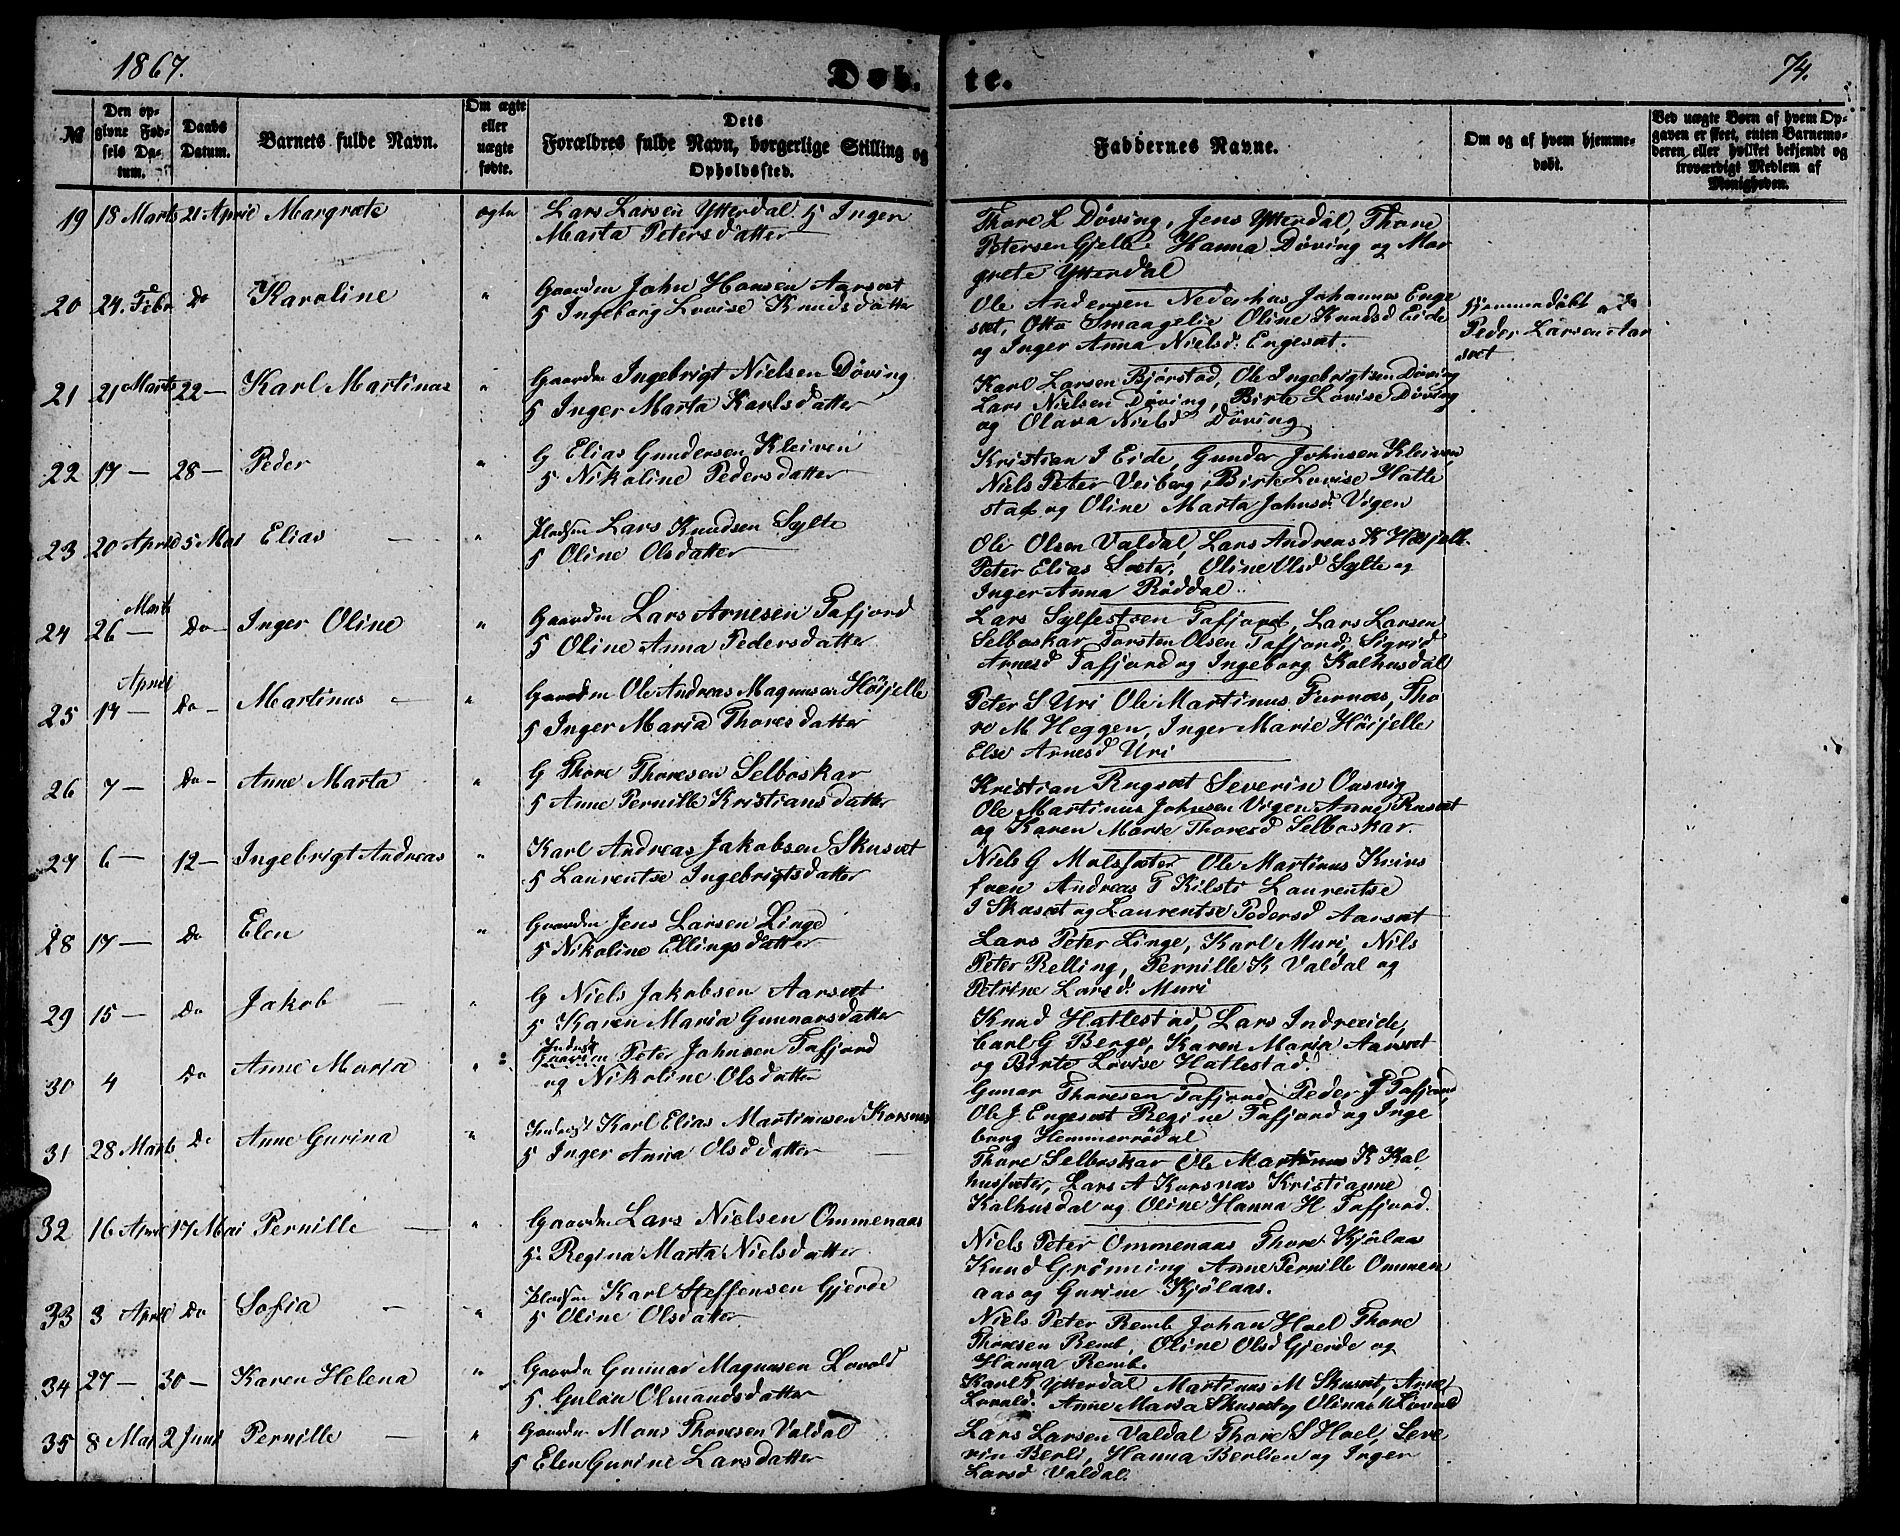 1867.
Døb-
te.
74.
No
Den op-
givne Fød-
sels Da-
tum.
Daabs
Datum.
Barnets fulde Navn.
Om ægte
eller
uægte
fødte.
Dets
Forældres fulde Navn, borgerlige Stilling og
Opholdssted.
Faddernes Navne.
Om og af hvem hjemme-
døbt.
Ved uægte Børn af hvem Op-
gaven er skeet, enten Barnemo-
deren eller hvilket bekjendt og
troværdigt Medlem af
Menigheden.
19 18 Marts 21 April Margrete ægte Lars Larsen Ytterdal. H Inger
Marta Petersdatter
Thore L Døving, Jens Ytterdal, Thore
Petersen Gjelle Hanna Døving og Mar
grete Ytterdal
20 24. Febr Do Karoline " Gaardm John Hansen Aarset
H Ingeborg Lovise Knudsdatter
Ole Andersen Nederhus Johannes Enge
set, Otto Smangelie Oline Knudsd Eide
og Inger Anna Nielsd: Engeset.
Hjemmedøbt af
Peder Larsen Aar
set
21 21 Marts 22 — Karl Martinus " Gaardm Ingebrigt Nielsen Døving
H Inger Marta Karlsdatter
Karl Larsen Bjørstad, Ole Ingebrigtsen Døving
Lars Nielsen Døving, Birte Lovise Døving
og Olava Nielsd Døving
22 17 — 28 — Peder " G Elias Gundersen Kleiven
H Nikoline Pedersdatter
Kristian I Eide, Gunder Johnsen Kleiven
Niels Peter Veiberg, Birte Lovise Hatle
stad og Oline Marta Johnsd Vigen
23 20 April 5 Mai Elias — " Pladsm Lars Knudsen Sylte
H Oline Olsdatter
Ole Olsen Valdal, Lars Andreas K Høijelle
Peter Elias Sæter, Oline Olsd Sylte og
Inger Anna Røddal
24 26 Marts — Do — Inger Oline " Gaardm Lars Arnesen Tafjord
H Oline Anna Pedersdatter
Lars Sylfestsen Tafjord, Lars Larsen
Selboskar Torsten Olsen Tafjord, Sigrid
Arnesd Tafjord og Ingeborg Kalhusdal
25 17 April — Do — Martinus — " Gaardm Ole Andreas Magnusen Høijelle
H Inger Maria Thoresdatter
Peter S Uri Ole Martinus Furnæs, Tho
re M Heggen, Inger Marie Høijelle
Else Arnesd Uri
26 7 — Do — Anne Marta " G Thore Thoresen Selboskar
H Anne Pernille Kristiansdatter
Kristian Rugset Severin Vasvig
Ole Martinus Johnsen Vigen Anne Ruset
og Karen Marie Thoresd Selboskar.
27 6 — 12 — Ingebrigt Andreas " Karl Andreas Jakobsen Skuset
H Laurentse Ingebrigtsdatter
Niels G Molsæter Ole Martinus Knivs
foen Andreas T Kilsti Laurentse
I Skuset og Laurentse Pedersd Aarset
28 17 — Do Elen " Gaardm Jens Larsen Linge
H Nikoline Ellingsdatter
Lars Peter Linge, Karl Muri, Nils
Peter Relling, Pernille K Valdal og
Petrine Larsd. Muri
29 15 — Do Jakob — " G Niels Jakobsen Aarset
H Karen Maria Gunnarsdatter
Knud Hatlestad, Lars Indreeide,
Carl G Berge, Karen Maria Aarset
og Birte Lovise Hatlestad.
30 4 Do Anne Maria " Inderst Gaardm Peter Johnsen Tafjord
og Nikoline Olsdatter
Gunar Thoresen Tafjord, Peder J Tafjord
Ole J. Engeset Regine Tafjord og Inge
borg Hemmerrødal
31 28 Marts Do Anne Gurina " Inderst Karl Elias Martinusen Korsnæs
H Inger Anna Olsddatter —
Thore Selboskar Ole Martinus K Kal
husæter, Lars A Korsnæs Kristianne
Kalhusdal og Oline Hanna H Tafjord.
32 16 April 17 Mai Pernille — " Gaardm Lars Nielsen Ommenaas
H. Regina Marta Nielsdatter
Niels Peter Ommenaas Thore Kjølaas
Knud Grønning Anne Pernille Ommen
aas og Gurine Kjølaas.
33 3 April Do Sofia — " Pladsm Karl Steffensen Gjerde
H Oline Olsdatter
Niels Peter Remb Johan Hoel Thore
Thoresen Remb, Oline Olsd Gjerde og
Hanna Remb.
34 27 — 30 — Karen Helena " Gaardm Gunnar Magnusen Lovold
H. Gulan Olmandsdatter
Karl T Ytterdal Martinus M Skuset, Arne
Lovold. Anne Maria Skuset og Oline Lovold
35 8 Mai 2 Juni Pernille — " Gaardm Mons Thoresen Valdal
H Elen Gurine Larsdatter
Lars Larsen Valdal Thore S Hoel, Seve
rin Berli, Hanna Berlien og Inger
Larsd Valdal.